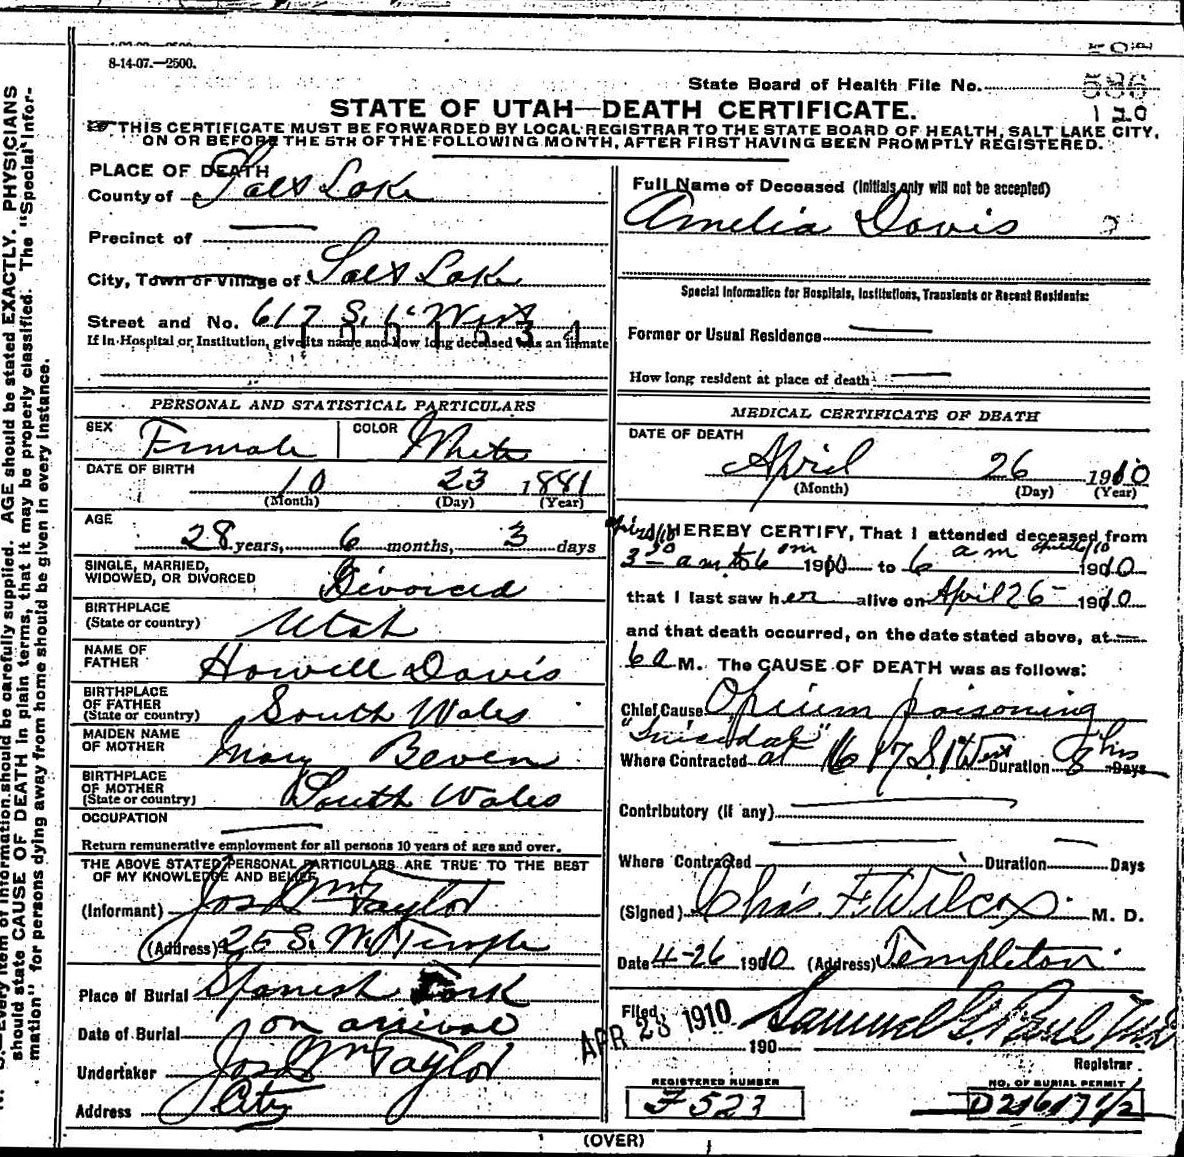 8-14-07.—2500.
State Board of Health File No. 586
120
STATE OF UTAH—DEATH CERTIFICATE.
THIS CERTIFICATE MUST BE FORWARDED BY LOCAL REGISTRAR TO THE STATE BOARD OF HEALTH, SALT LAKE CITY,
ON OR BEFORE THE 5TH OF THE FOLLOWING MONTH, AFTER FIRST HAVING BEEN PROMPTLY REGISTERED.
PLACE OF DEATH
County of Salt Lake
Precinct of
City, Town or Village of Salt Lake
Street and No. 617 S. 1st West
If in Hospital or Institution, give its name and how long deceased was an inmate
PERSONAL AND STATISTICAL PARTICULARS
SEX Female COLOR White
DATE OF BIRTH
10 23 1881
(Month) (Day) (Year)
AGE
28 years, 6 months, 3 days
SINGLE, MARRIED,
WIDOWED, OR DIVORCED Divorced
BIRTHPLACE
(State or country) Utah
NAME OF
FATHER Howell Davis
BIRTHPLACE
OF FATHER
(State or country) South Wales
MAIDEN NAME
OF MOTHER Mary Beven
BIRTHPLACE
OF MOTHER
(State or country) South Wales
OCCUPATION
Return remunerative employment for all persons 10 years of age and over.
THE ABOVE STATED PERSONAL PARTICULARS ARE TRUE TO THE BEST
OF MY KNOWLEDGE AND BELIEF
(Informant) Jos Wm Taylor
(Address) 25 S. W. Temple
Place of Burial Spanish Fork
Date of Burial on arrival
Undertaker Jos Wm Taylor
Address City
Full Name of Deceased (Initials only will not be accepted)
Amelia Davis
Special Information for Hospitals, Institutions, Transients or Recent Residents:
Former or Usual Residence
How long resident at place of death
MEDICAL CERTIFICATE OF DEATH
DATE OF DEATH
April 26 1910
(Month) (Day) (Year)
I HEREBY CERTIFY, That I attended deceased from
3 30 a m to 6 am 1910 to 6 a m 1910
that I last saw her alive on April 26 1910
and that death occurred, on the date stated above, at
6 a M. The CAUSE OF DEATH was as follows:
Chief Cause Opium poisoning
"Suicidal"
Where Contracted at 617 S. 1st West Duration 8 hrs Days
Contributory (if any)
Where Contracted Duration Days
(Signed) Chas. F. Wilcox M. D.
Date 4-26 1910 (Address) Templeton
Filed, APR 28 1910
190 Samuel G. Paul
Registrar
REGISTERED NUMBER
F 523
NO. OF BURIAL PERMIT
D21617 1/2
(OVER)
AGE should be stated EXACTLY. PHYSICIANS
should state CAUSE OF DEATH in plain terms, that it may be properly classified. The "Special Infor-
mation" for persons dying away from home should be given in every instance.